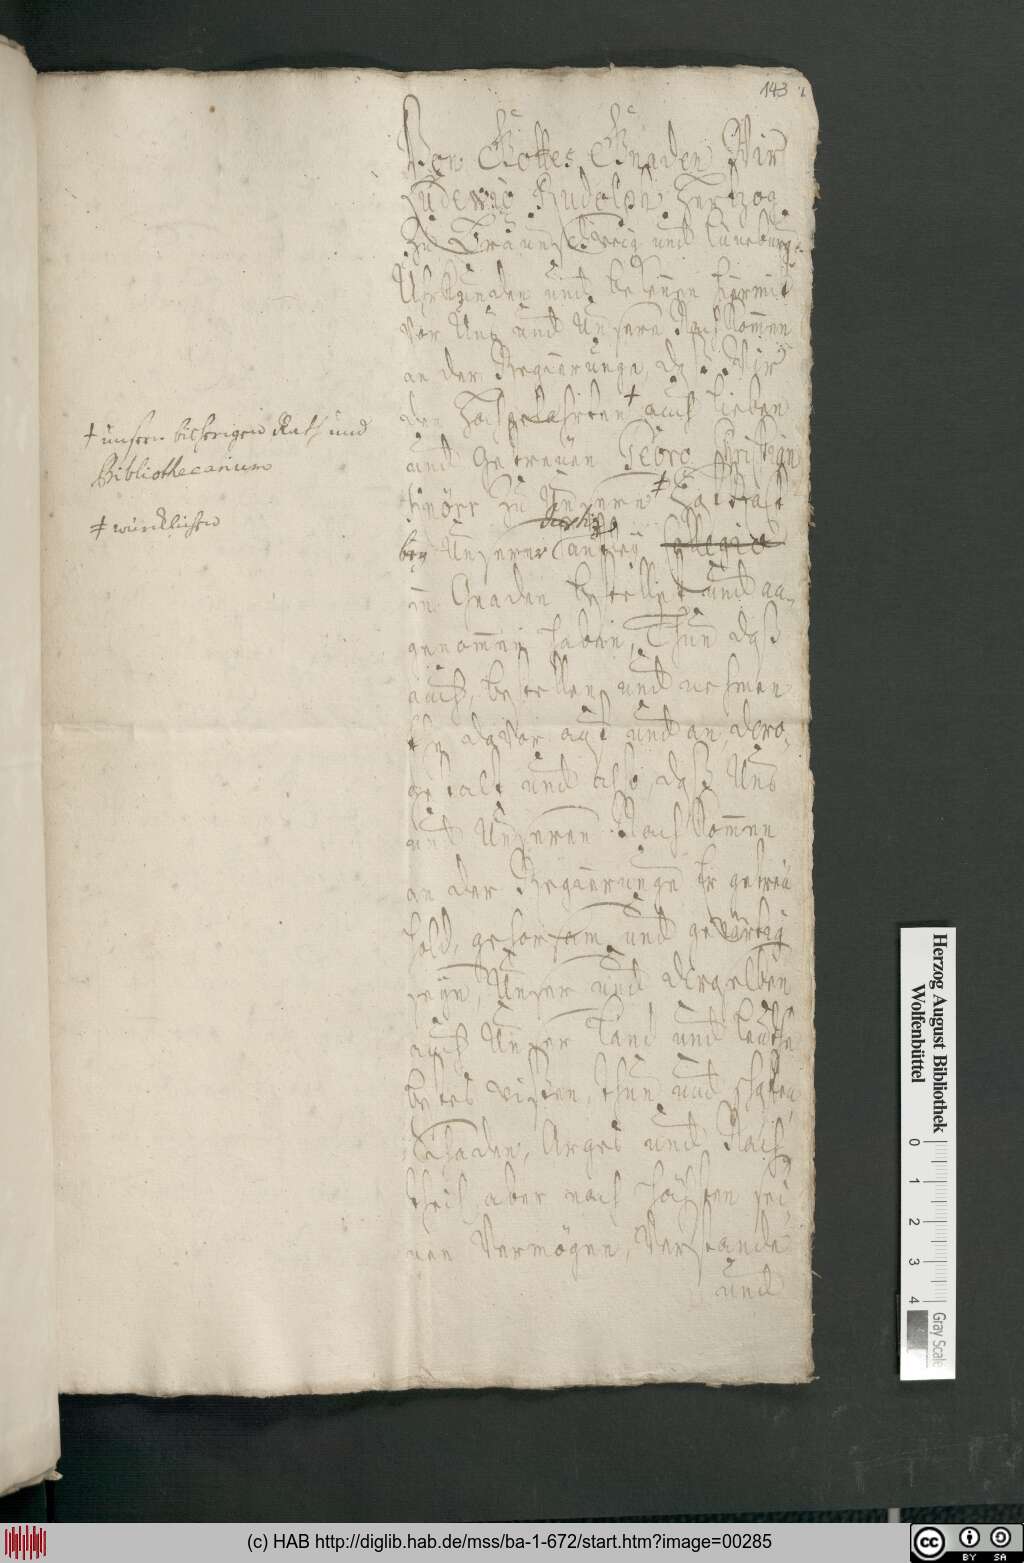 143
Von Gottes Gnaden Wir
Ludewig Rudolph Hertzog
zu Braunschweig und Lüneburg
Uhrkunden und bekennen hiermit
vor Uns und Unsere Nachkommen
an der Regierunge, daß Wir
den Hochgelahrten ✝ auch lieben
✝ unsern bisherigen Rath und
Bibliothecarium
und Getreuen Georg Christian
Knörr zu Unserm ‡ Hoffrath
‡ würcklichen
bey Unserer Cantzley Collegio
in Gnaden bestellet und an-
genommen haben, Thun daß
auch, bestellen und nehmen
Ihn davor auf und an, dero-
gestalt und also, daß Uns
und Unseren Nachkommen
an der Regierunge Er getreu
hold, gehorsam und gewärtig
seyn, Unser und derselben
auch Unser Land und Leuthe
bestes wissen, thun und schaffen,
Schaden, Arges und Nach-
theil aber nach höchsten sei-
nen Vermögen, Verstande
und
Herzog August Bibliothek
Wolfenbüttel
0 1 2 3 4
Gray Scale
(c) HAB http://diglib.hab.de/mss/ba-1-672/start.htm?image=00285
cc BY SA